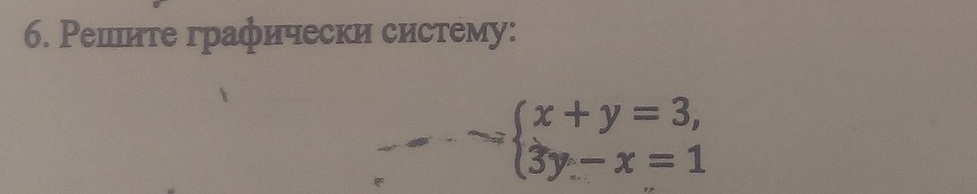 6. Решите графически систему:
{x + y = 3,
{3y − x = 1